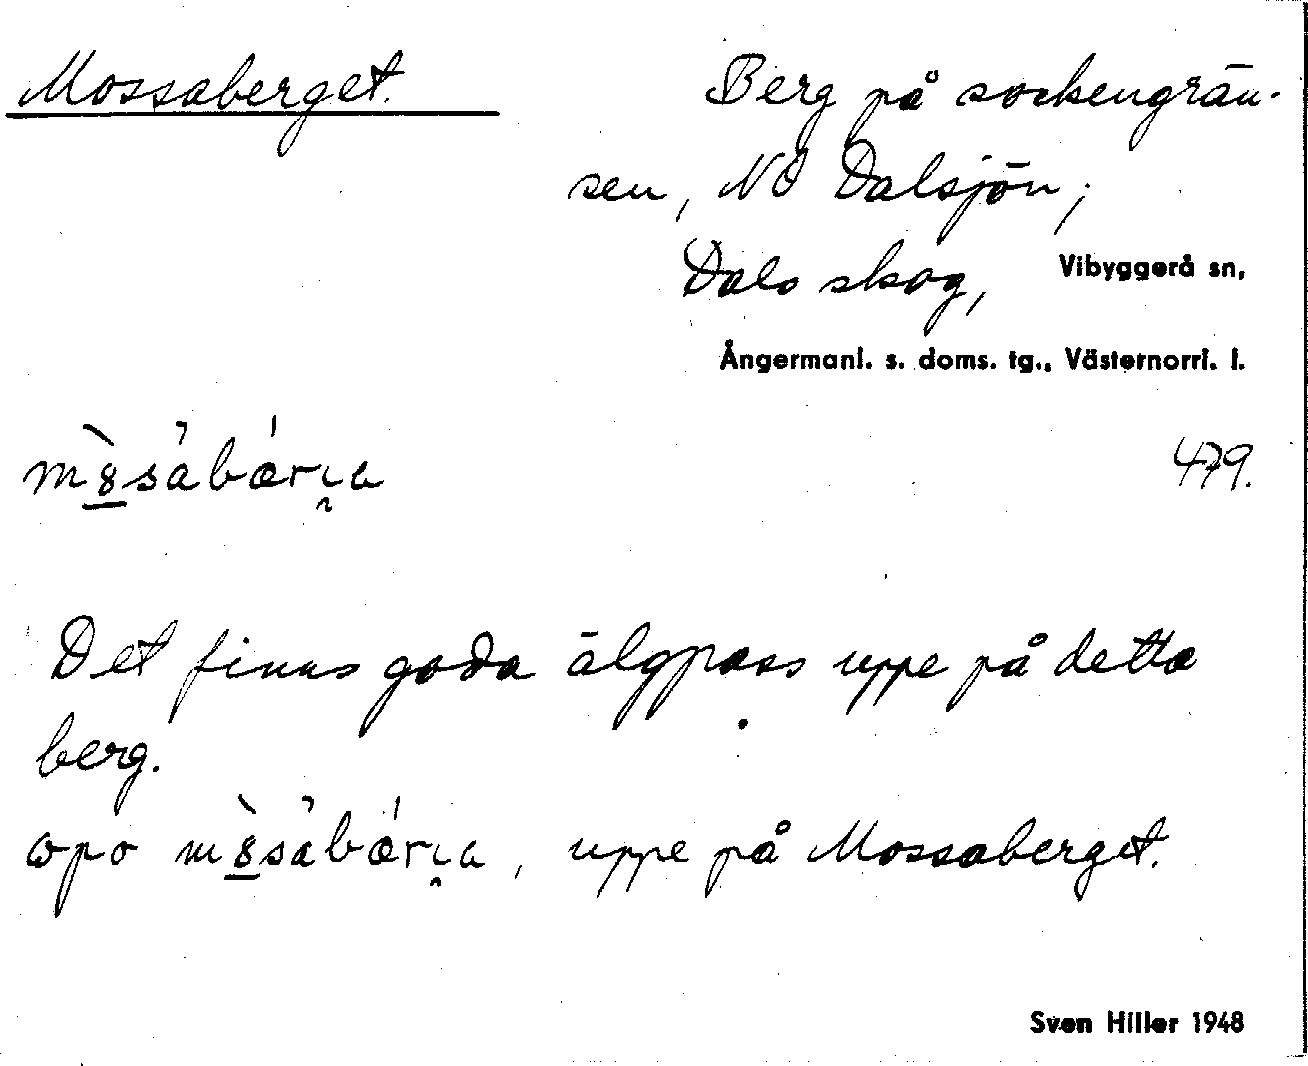 Mossaberget.
Berg på sockengrän-
sen, NO Dalsjön;
Dals skog, Vibyggerå sn,
Ångermanl. s. doms. tg., Västernorrl. l.
479.
Det finns goda älgpass uppe på detta
berg.
uppe på Mossaberget.
Sven Hiller 1948